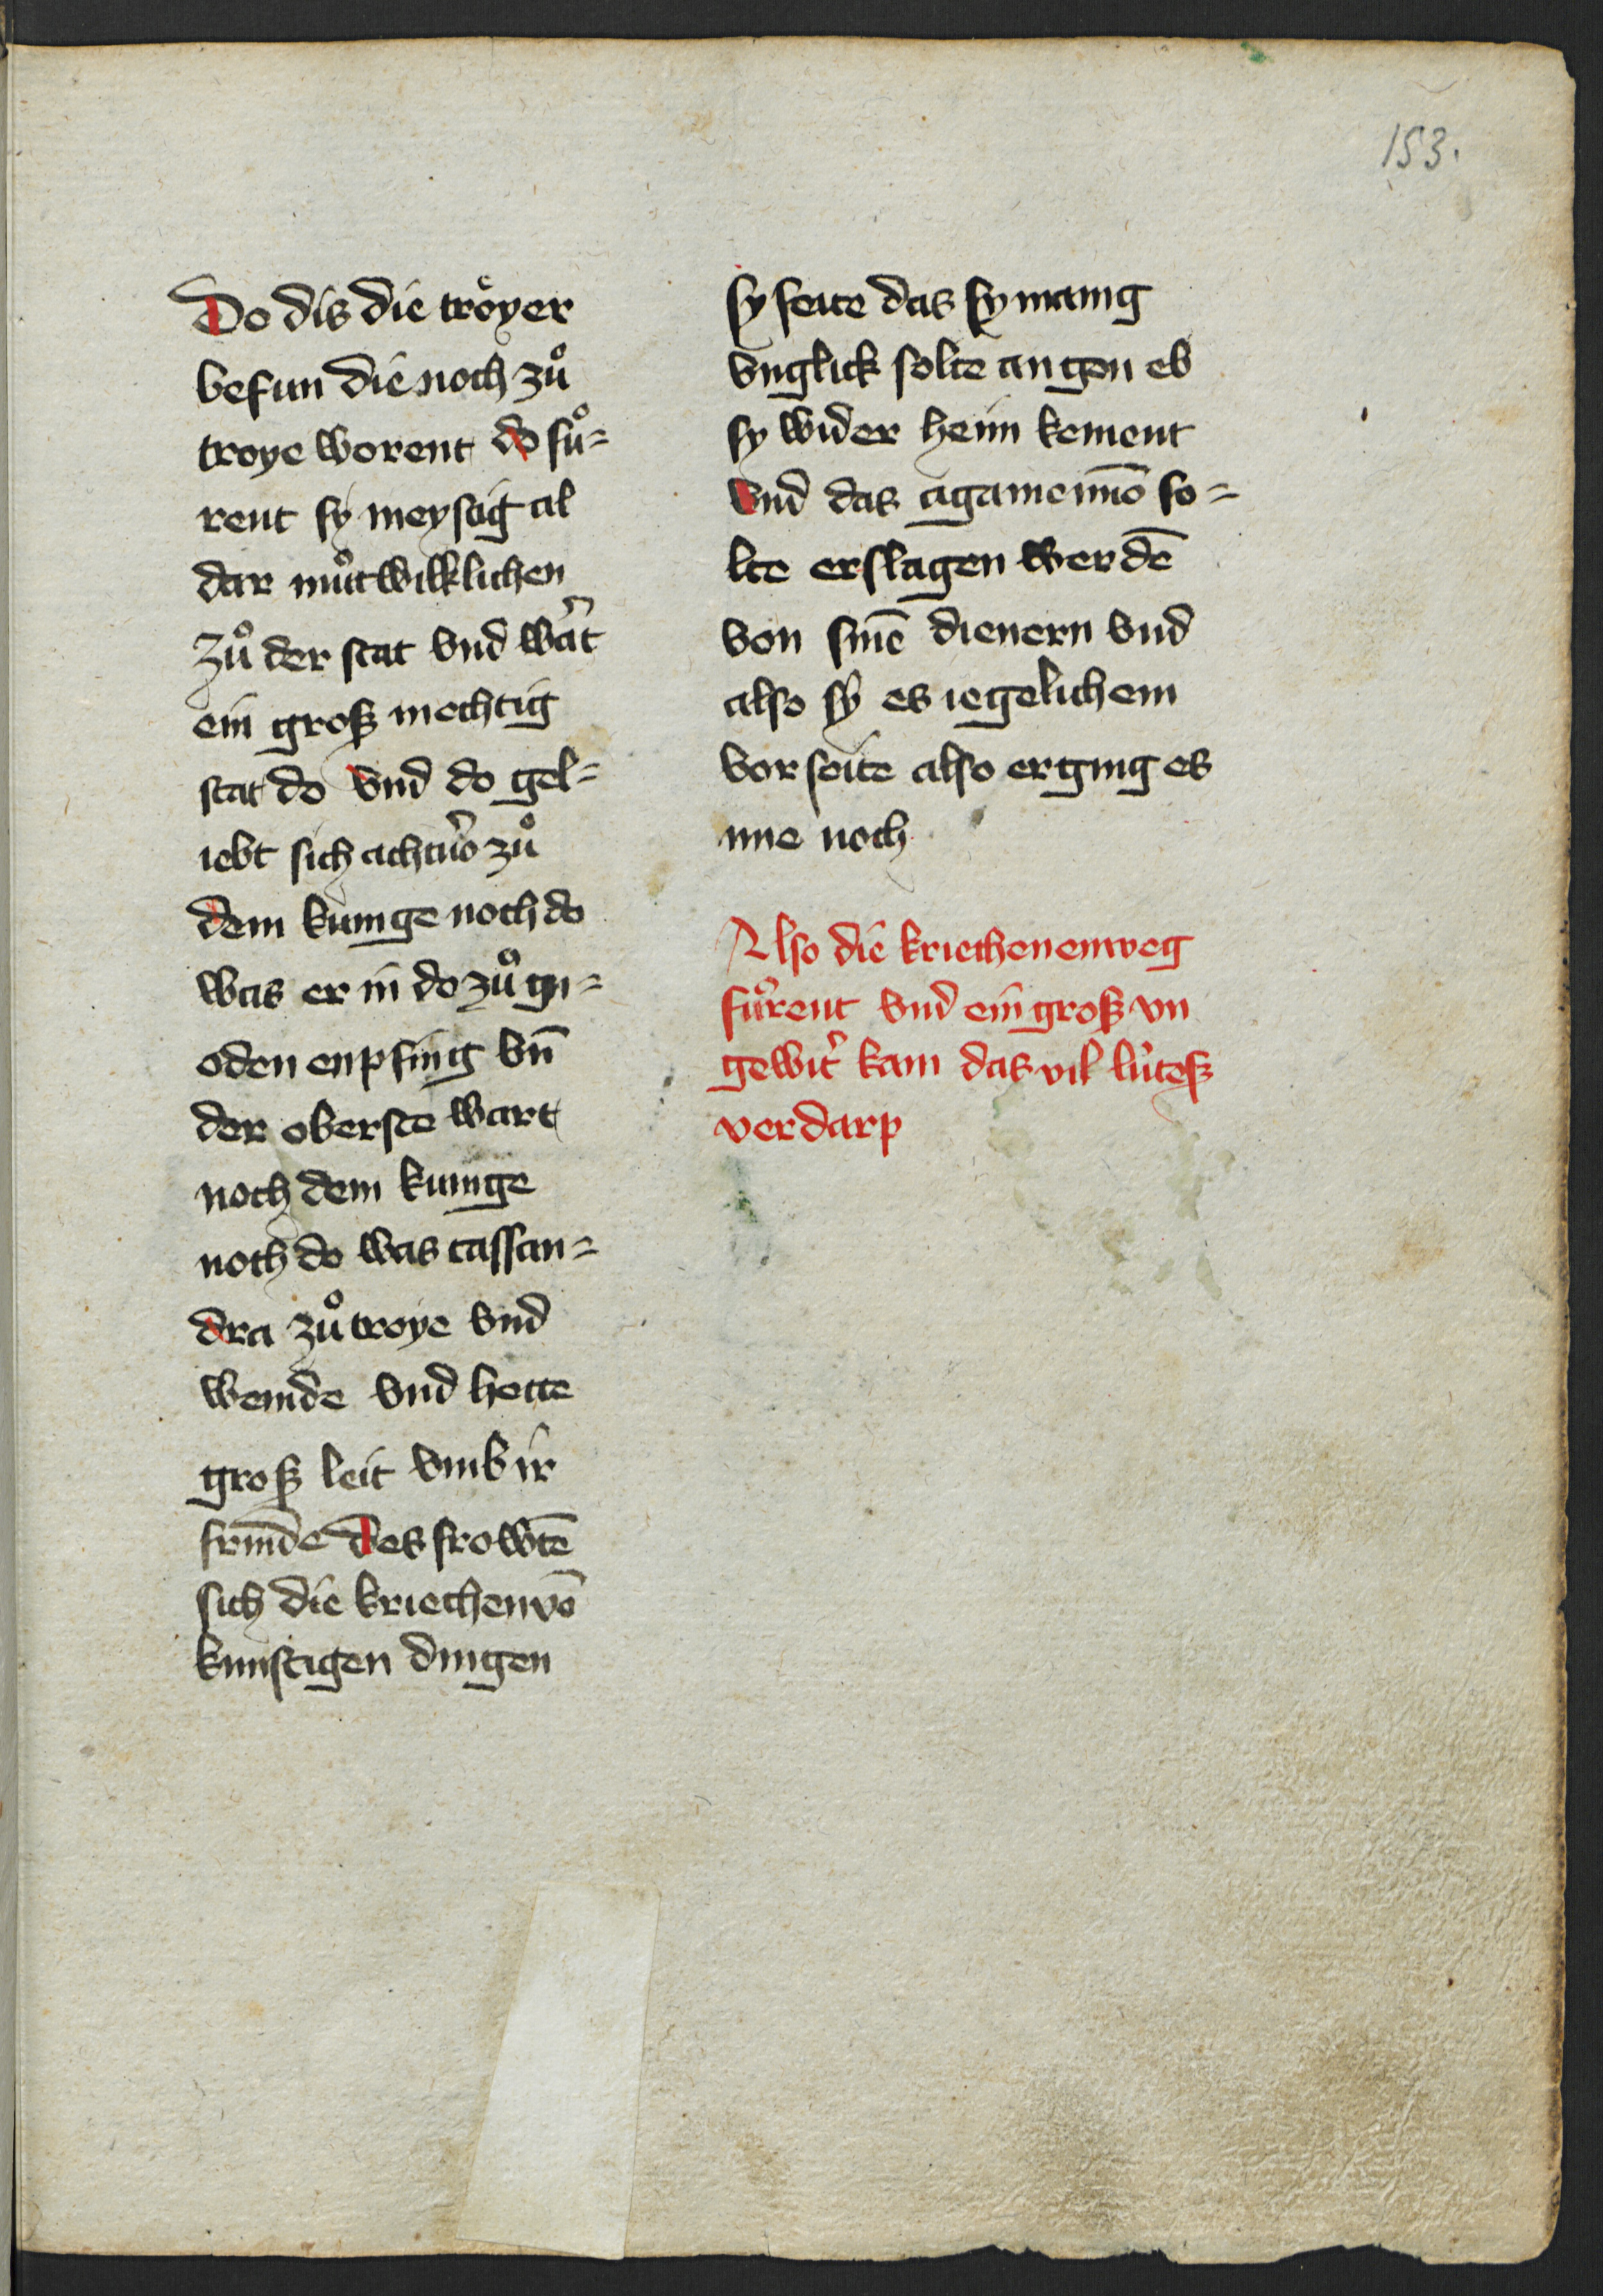 153.
Do dis die tröyer
befun die noch zuͦ
troye worent do fuͦ=
rent sy meysag al
dar muͦtwilklichen
zuͦ der stat vnd wart
ein groß mechtig
stat do vnd do gel=
iebt sich zuͦ
dem kunige noch do
was er in do zuͦ gn=
oden enpfing vn̄
der oberste wart
noch dem kunige
noch do was cassan=
dra zuͦ troye vnd
weinde vnd hette
groß leit vmb ir
frinde des frowtē
sich die kriechen vō
kunftigen dingen
sy seite das sy manig
vnglick solte an gen eb
sy wider heim koment
vnd das agamemnō so=
lte erslagen werdē
von sinē dienern vnd
also sy es iegelichem
vor seite also erging es
ime noch
Also die kriechen enweg
fuͦrent vnd ein groß vn
gewit' kam das vil lúteß
verdarp